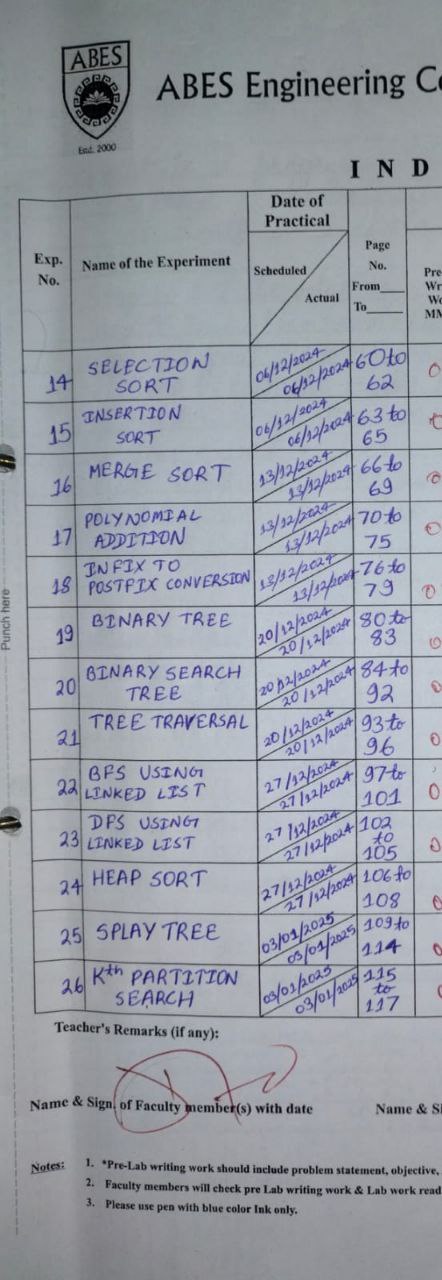 ABES
Estd. 2000
ABES Engineering Co
I N D
Exp. No.
Name of the Experiment
Date of Practical
Scheduled
Actual
Page No.
From____
To____
Pre
Wr
Wo
MM
14 SELECTION SORT 06/12/2024 06/12/2024 60 to 62
15 INSERTION SORT 06/12/2024 06/12/2024 63 to 65
16 MERGE SORT 13/12/2024 13/12/2024 66 to 69
17 POLYNOMIAL ADDITION 13/12/2024 13/12/2024 70 to 75
18 INFIX TO POSTFIX CONVERSION 13/12/2024 13/12/2024 76 to 79
19 BINARY TREE 20/12/2024 20/12/2024 80 to 83
20 BINARY SEARCH TREE 20/12/2024 20/12/2024 84 to 92
21 TREE TRAVERSAL 20/12/2024 20/12/2024 93 to 96
22 BFS USING LINKED LIST 27/12/2024 27/12/2024 97 to 101
23 DFS USING LINKED LIST 27/12/2024 27/12/2024 102 to 105
24 HEAP SORT 27/12/2024 27/12/2024 106 to 108
25 SPLAY TREE 03/01/2025 03/01/2025 109 to 114
26 Kth PARTITION SEARCH 03/01/2025 03/01/2025 115 to 117
Punch here
Teacher's Remarks (if any):
Name & Sign. of Faculty member(s) with date
Name & Si
Notes: 1. *Pre-Lab writing work should include problem statement, objective,
2. Faculty members will check pre Lab writing work & Lab work read
3. Please use pen with blue color Ink only.